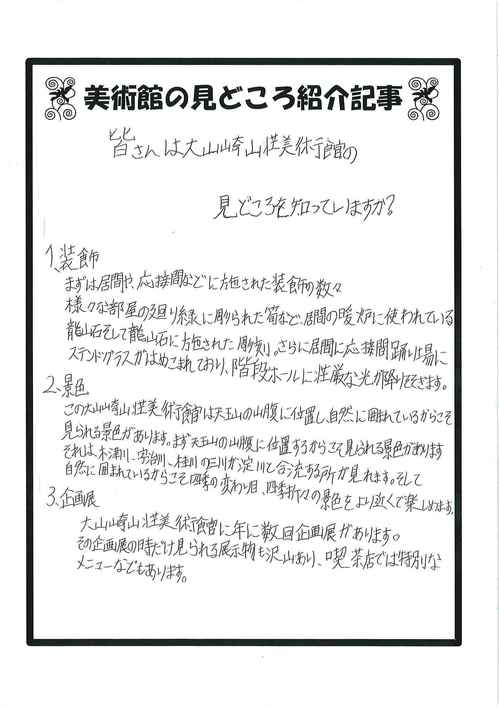 美術館の見どころ紹介記事
皆さんは大山崎山荘美術館の
見どころを知っていますか？
1、装飾
まずは居間や、応接間などに施された装飾の数々
様々な部屋の廻り縁に彫られた筍など、居間の暖炉に使われている
龍山石そして龍山石に施された彫刻。さらに居間に応接間踊り場に
ステンドグラスがはめこまれており、階段ホールに荘厳な光が降りそそぎます。
2、景色
この大山崎山荘美術館は天王山の山腹に位置し、自然に囲まれているからこそ
見られる景色があります。まず天王山の山腹に位置するからこそ見られる景色があります
それは、木津川、宇治川、桂川の三川が淀川で合流する所が見れます。そして
自然に囲まれているからこそ四季の変わり目、四季折々の景色をより近くで楽しめます。
3、企画展
大山崎山荘美術館に年に数回企画展があります。
その企画展の時だけ見られる展示物も沢山あり、喫茶店では特別な
メニューなどもあります。